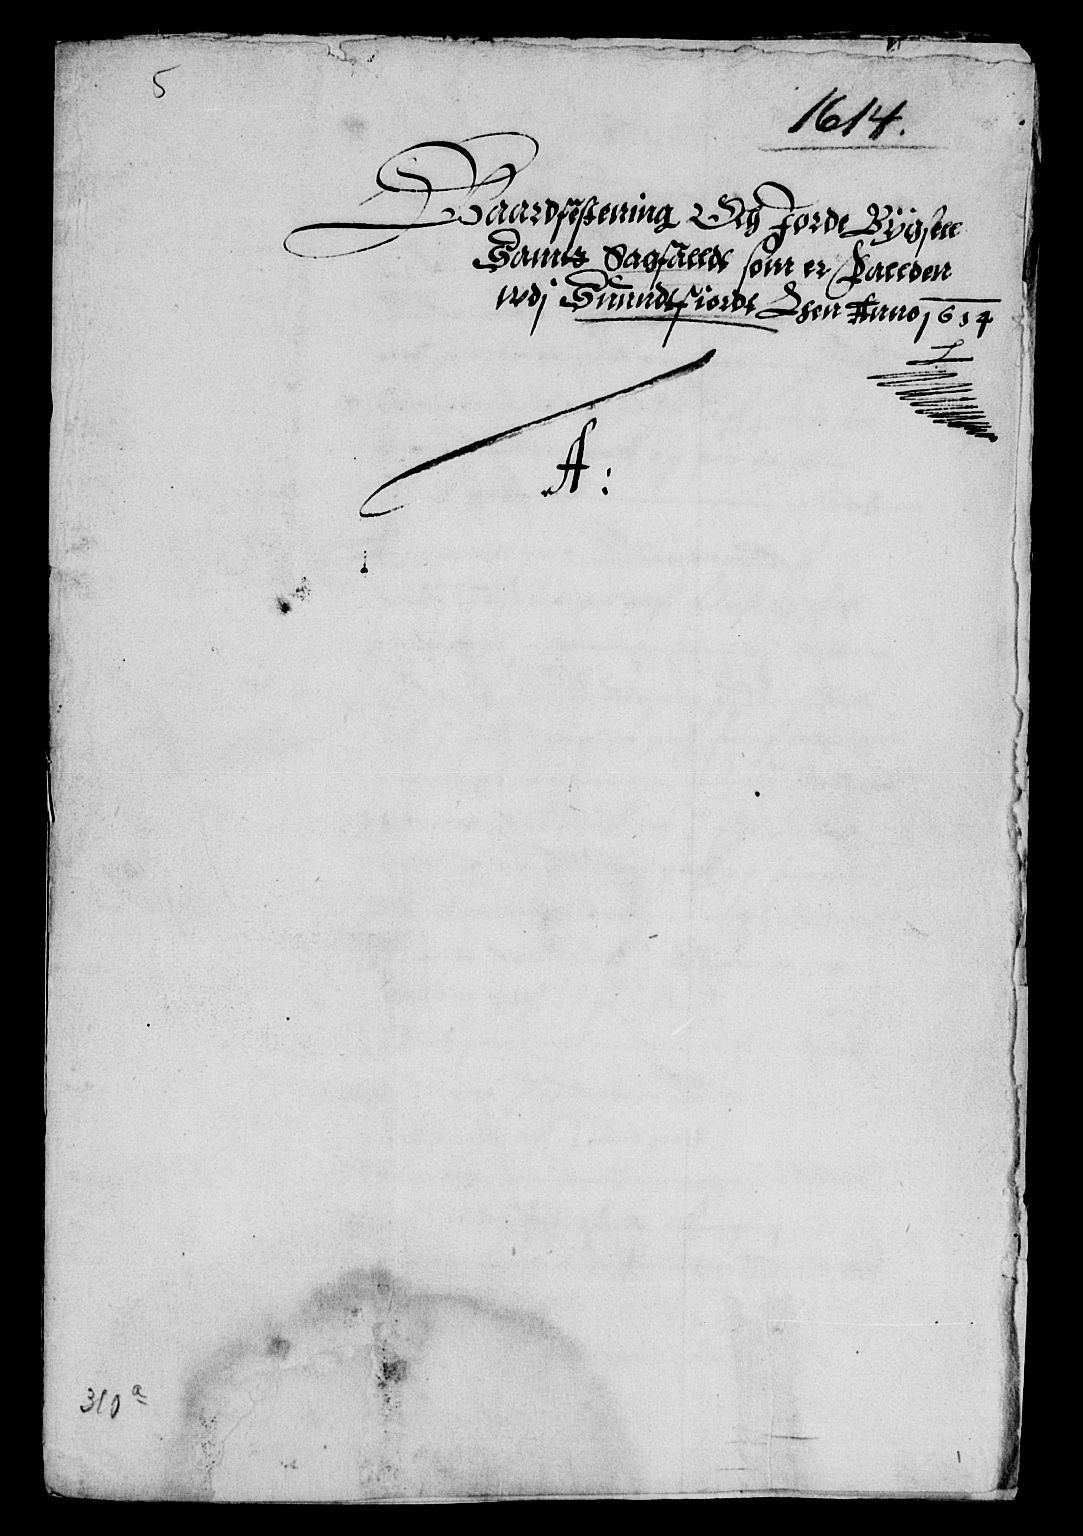 5
1614.
Gaardfestening Och Jorde Bÿgsell
Sampt Sagfaelde som er Falden
wdj Sunndfiords Lhen Anno 1614
A:
310 a